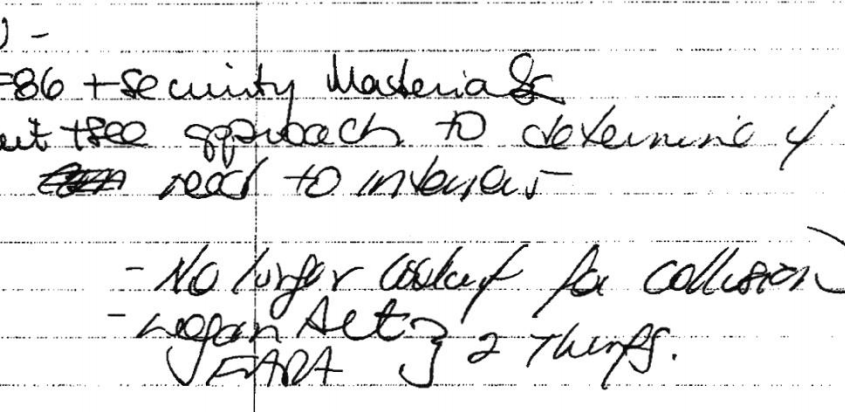 ) -
=86 + Security Materials
wait + see approach to determine if
need to interview
- No longer looking for collusion
- Logan Act } 2 Things.
FARA